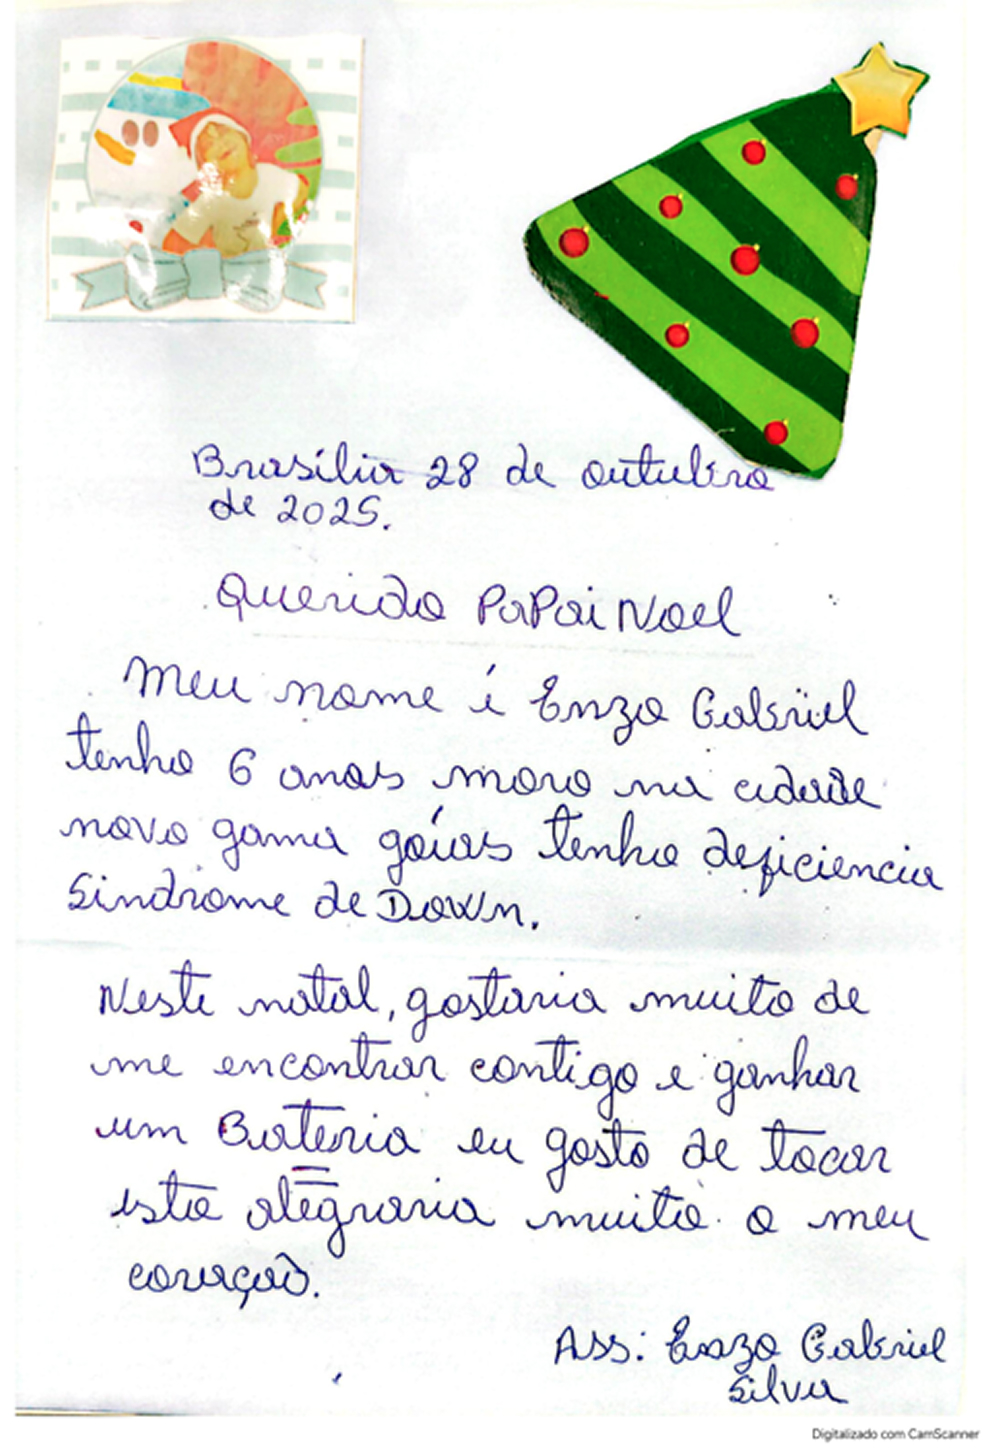 Brasília 28 de outubro
de 2025.
Querido PaPai Noel
Meu nome é Enzo Gabriel
tenho 6 anos moro na cidade
novo gama goías tenho deficiencia
Sindrome de Down.
Neste natal, gostaria muito de
me encontrar contigo e ganhar
um Bateria eu gosto de tocar
isto alegraria muito o meu
coração.
Ass: Enzo Gabriel
Silva
Digitalizado com CamScanner